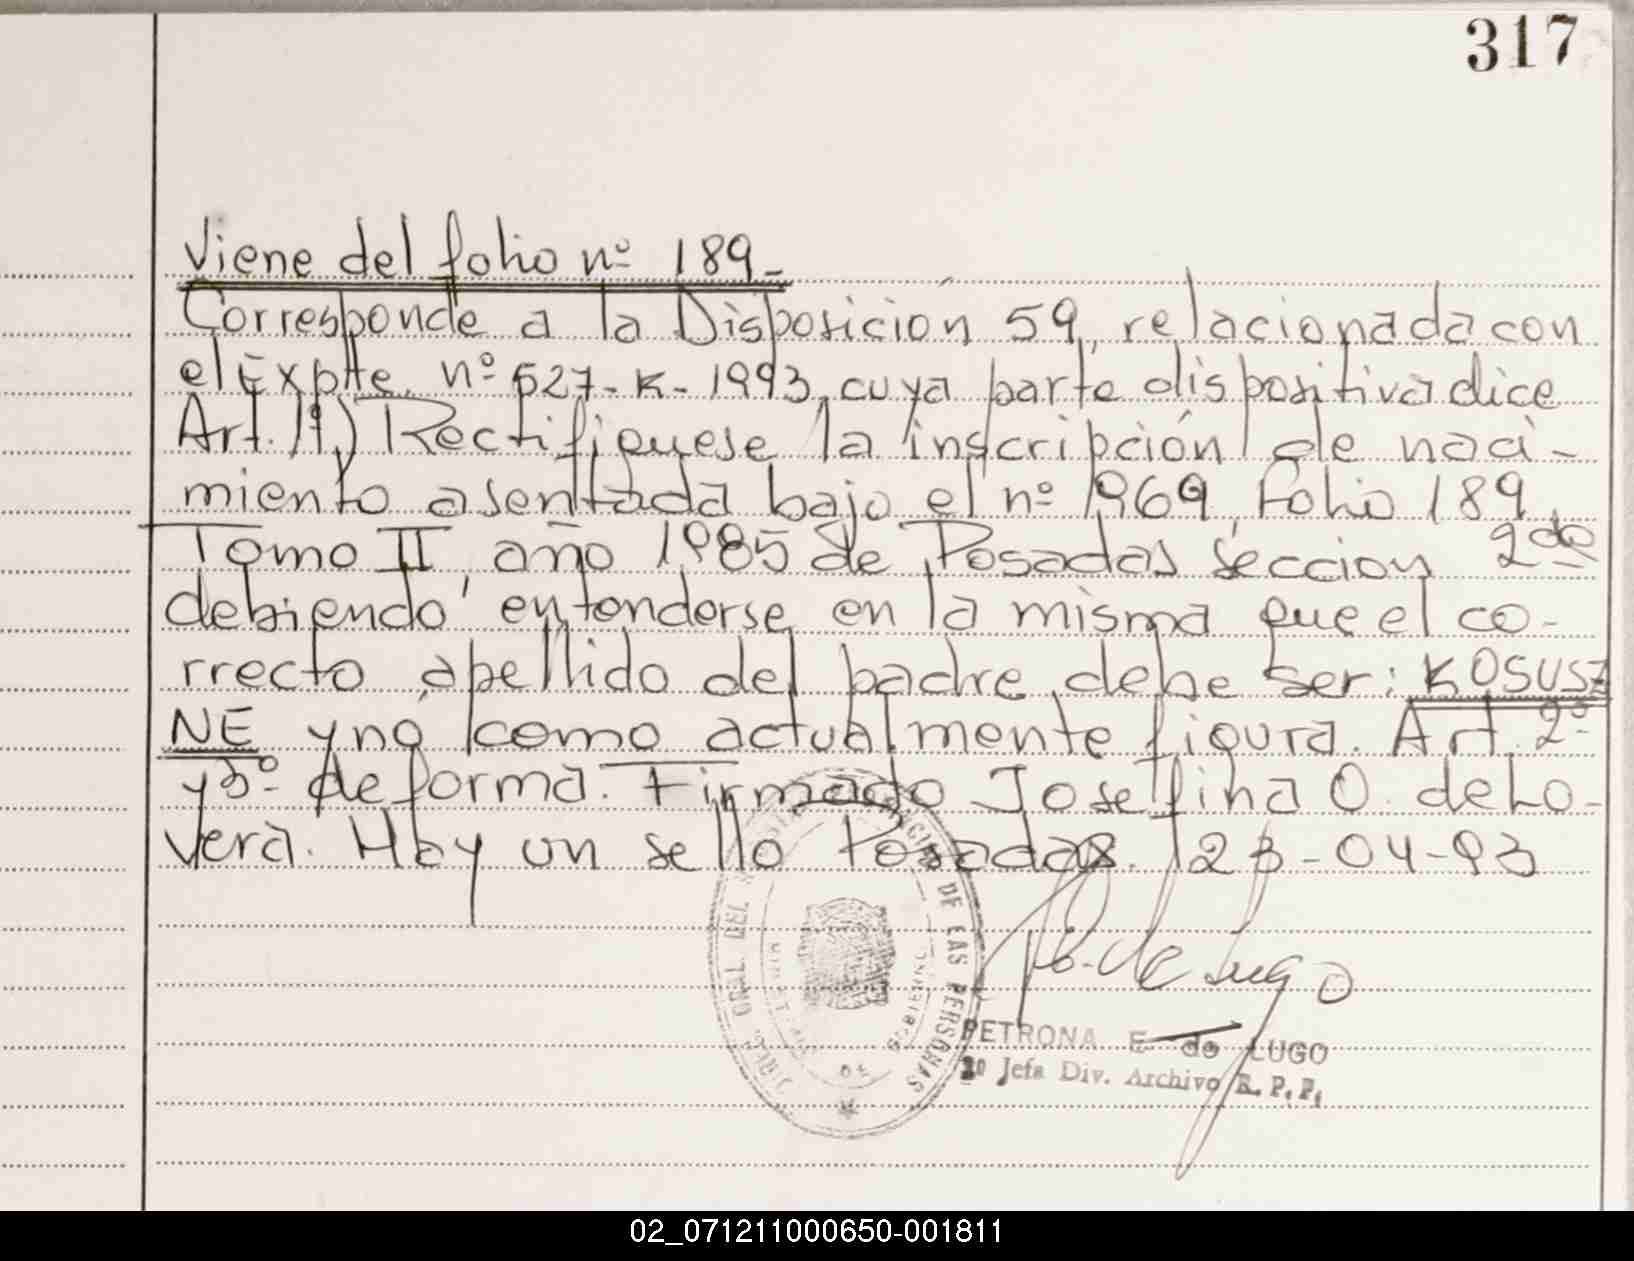 317
Viene del folio nº 189.-
Corresponde a la Disposición 59, relacionada con
el Expte. nº 527-K-1993, cuya parte dispositiva dice
Art. 1º) Rectifíquese la inscripción de naci-
miento asentada bajo el nº 1969, Folio 189,
Tomo II, año 1985 de Posadas sección 2da
debiendo entenderse en la misma que el co-
rrecto apellido del padre debe ser: KOSUSZ
NE y no como actualmente figura. Art. 2º
y 3º de forma. Firmado Josefina O. de Lo-
vera. Hay un sello Posadas. 23-04-93
P. de Lugo
DE LAS PERSONAS
PETRONA E de LUGO
Jefa Div. Archivo R. P. P.
02_071211000650-001811